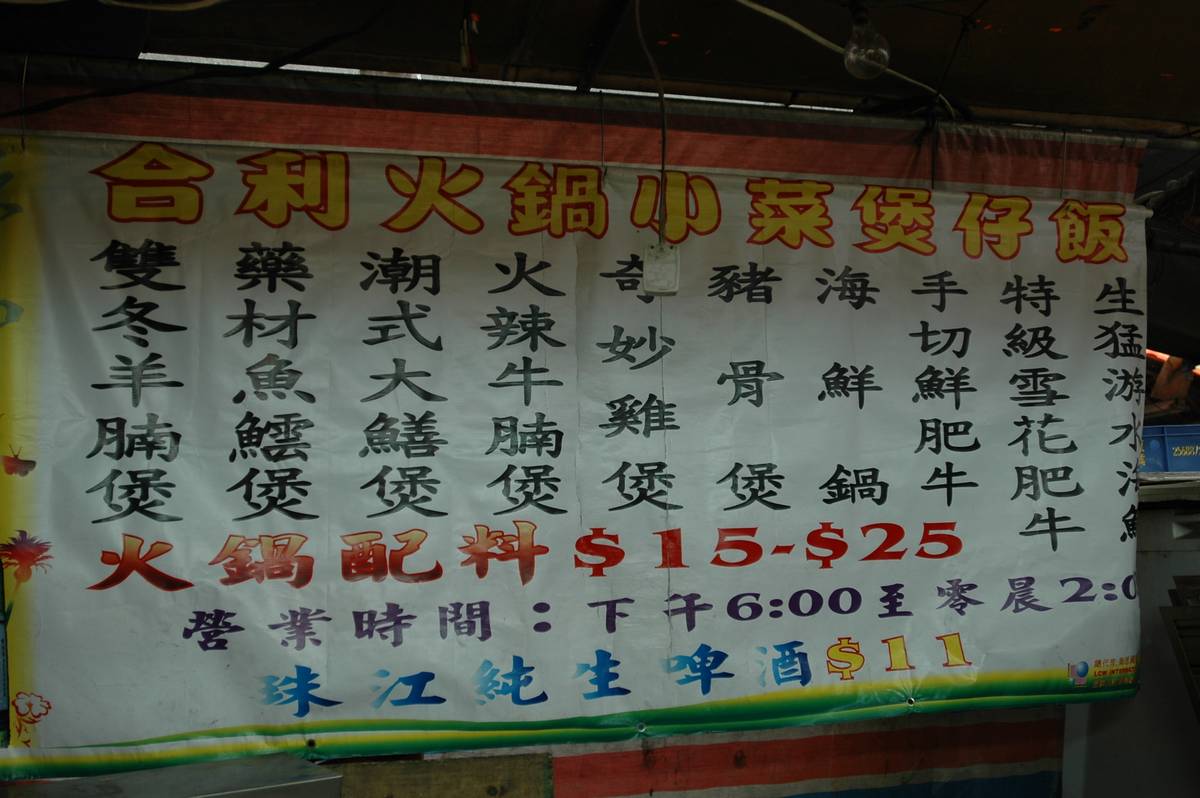 合利火鍋小菜煲仔飯
生猛游水海魚
特級雪花肥牛
手切鮮肥牛
海鮮鍋
豬骨煲
奇妙雞煲
火辣牛腩煲
潮式大鱔煲
藥材魚鱸煲
雙冬羊腩煲
火鍋配料$15-$25
營業時間：下午6:00至零晨2:0
珠江純生啤酒$11